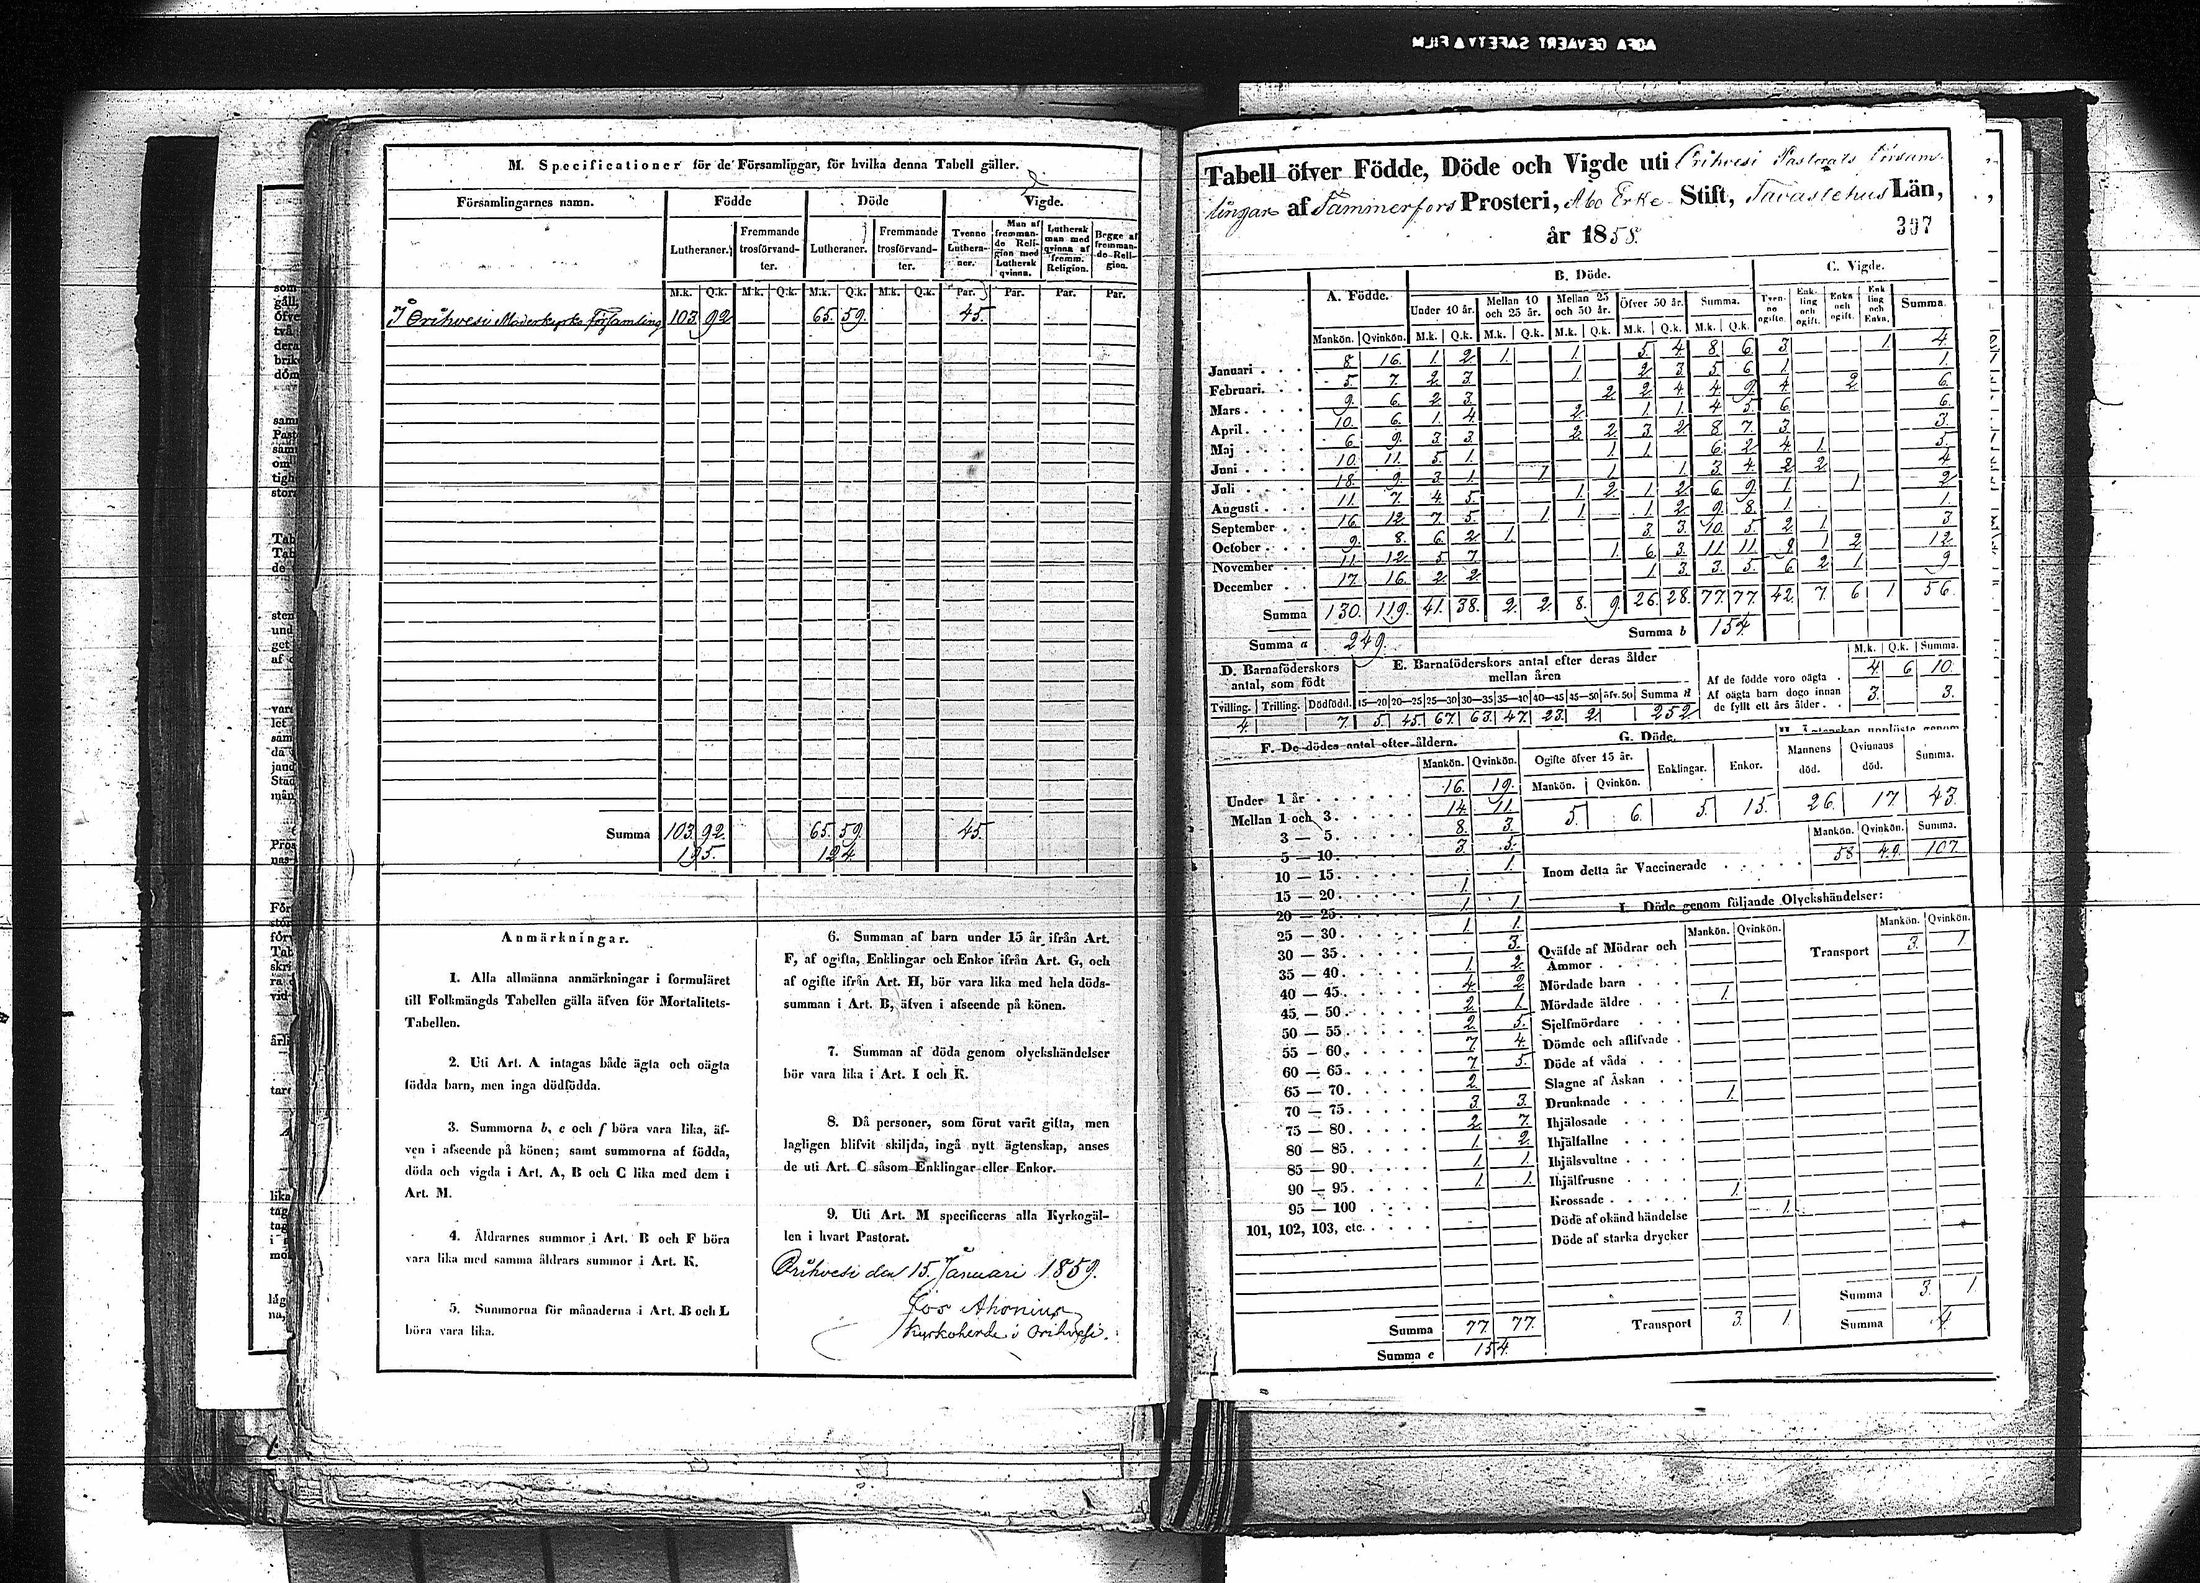 AGFA GEVAERT SAFETY FILM
M. Specificationer för de Församlingar, för hvilka denna Tabell gäller.
Församlingarnes namn. Födde Döde Vigde.
Lutheraner. Fremmande trosförvandter. Lutheraner. Fremmande trosförvandter. Tvenne Lutheraner. Man af fremmande Religion med Luthersk qvinna. Luthersk man med qvinna af fremm. Religion. Begge af fremmande Religion.
M.k. Q.k. M.k. Q.k. M.k. Q.k. M.k. Q.k. Par. Par. Par. Par.
I Orihvesi Moderkyrko Församling 103. 92. 65. 59. 45.
Summa 103. 92. 65. 59. 45.
195. 124.
Anmärkningar.
1. Alla allmänna anmärkningar i formuläret
till Folkmängds Tabellen gälla äfven för Mortalitets-
Tabellen.
2. Uti Art. A intagas både ägta och oägta
födda barn, men inga dödfödda.
3. Summorna b, e och f böra vara lika, äf-
ven i afseende på könen; samt summorna af födda,
döda och vigda i Art. A, B och C lika med dem i
Art. M.
4. Åldrarnes summor i Art. B och F böra
vara lika med samma åldrars summor i Art. K.
5. Summorna för månaderna i Art. B och L
böra vara lika.
6. Summan af barn under 15 år ifrån Art.
F, af ogifta, Enklingar och Enkor ifrån Art. G, och
af ogifte ifrån Art. H, bör vara lika med hela döds-
summan i Art. B, äfven i afseende på könen.
7. Summan af döda genom olyckshändelser
bör vara lika i Art. I och K.
8. Då personer, som förut varit gifta, men
lagligen blifvit skiljda, ingå nytt ägtenskap, anses
de uti Art. C såsom Enklingar eller Enkor.
9. Uti Art. M specificeras alla Kyrkogäl-
len i hvart Pastorat.
Orihvesi den 15. Januari 1859.
Kyrkoherde i Orihvesi.
Tabell öfver Födde, Döde och Vigde uti Orihvesi Pastorats Försam-
lingar af Tammerfors Prosteri, Åbo Erke Stift, Tavastehus Län,
år 1858.
397
A. Födde. B. Döde. C. Vigde.
Under 10 år. Mellan 10 och 25 år. Mellan 25 och 50 år. Öfver 50 år. Summa. Tvenne ogifte. Enkling och ogift. Enka och ogift. Enkling och Enka. Summa.
Mankön. Qvinkön. M.k. Q.k. M.k. Q.k. M.k. Q.k. M.k. Q.k. M.k. Q.k.
Januari 8 16. 1. 2. 1. 1. 5. 4. 8. 6. 3. 1 4.
Februari. 5. 7. 2. 3. 1. 2. 3. 5 6 1. 1.
Mars 9. 6. 2 3. 2 2 4 4 9. 4. 2 6.
April. 10. 6. 1. 4. 2. 1. 1. 4 5. 6. 6.
Maj 6. 9. 3 3. 2. 2. 3. 2. 8 7. 3. 3.
Juni 10. 11. 5. 1. 1. 1. 6. 2 4. 1. 5.
Juli 18. 9. 3. 1. 1 1. 1. 3 4. 2 2. 4
Augusti 11. 7. 4. 5. 1. 2. 1. 2. 6. 9. 1. 1. 2
September 16. 12. 7. 5. 1. 1. 1. 2. 9. 8. 1. 1.
October 9. 8. 6. 2. 1. 3. 3. 10. 5. 2. 1. 3.
November 11. 12. 5 7. 1. 6. 3. 11. 11. 8. 1. 2. 12.
December 17. 16. 2. 2. 1. 3. 3. 5. 6 2 1. 9
Summa 130. 119. 41. 38. 2. 2. 8. 9. 26. 28. 77. 77. 42. 7 6 1 56.
Summa a 249. Summa b 154.
D. Barnaföderskors antal, som födt
Tvilling. Trilling. Dödfödd.
4. 7.
E. Barnaföderskors antal efter deras ålder mellan åren
15—20 20—25 25—30 30—35 35—40 40—45 45—50 öfv. 50 Summa d
5. 45. 67. 63. 47. 23. 2. 252.
M.k. Q.k. Summa.
Af de födde voro oägta 4. 6 10.
Af oägta barn dogo innan de fyllt ett års ålder 3. 3.
F. De dödes antal efter åldern.
Mankön. Qvinkön.
Under 1 år 16. 19.
Mellan 1 och 3. 14. 11.
3 — 5. 8. 3.
5 — 10. 3. 5.
10 — 15. 1.
15 — 20. 1.
20 — 25. 1. 1.
25 — 30. 1. 1.
30 — 35. 3.
35 — 40. 1. 2.
40 — 45. 4. 2.
45 — 50. 2. 1.
50 — 55. 2. 5.
55 — 60. 7. 4.
60 — 65. 7. 5.
65 — 70. 2.
70 — 75. 3. 3.
75 — 80. 2. 7.
80 — 85. 1. 2.
85 — 90. 1. 1.
90 — 95. 1. 1.
95 — 100
101, 102, 103, etc.
Summa 77. 77.
Summa e 154.
G. Döde.
Ogifte öfver 15 år. Enklingar. Enkor.
Mankön. Qvinkön.
5. 6. 5. 15.
Mannens död. Qvinnans död. Summa.
26. 17 43.
Mankön. Qvinkön. Summa.
Inom detta år Vaccinerade 58 49. 107.
I. Döde genom följande Olyckshändelser:
Mankön. Qvinkön. Mankön. Qvinkön.
Transport 3. 1
Qväfde af Mödrar och Ammor
Mördade barn 1.
Mördade äldre
Sjelfmördare
Dömde och aflifvade
Döde af våda
Slagne af Åskan
Drunknade 1.
Ihjälosade
Ihjälfallne
Ihjälsvultne
Ihjälfrusne
Krossade 1.
Döde af okänd händelse 1.
Döde af starka drycker
Summa 3. 1.
Transport 3. 1. Summa 4.